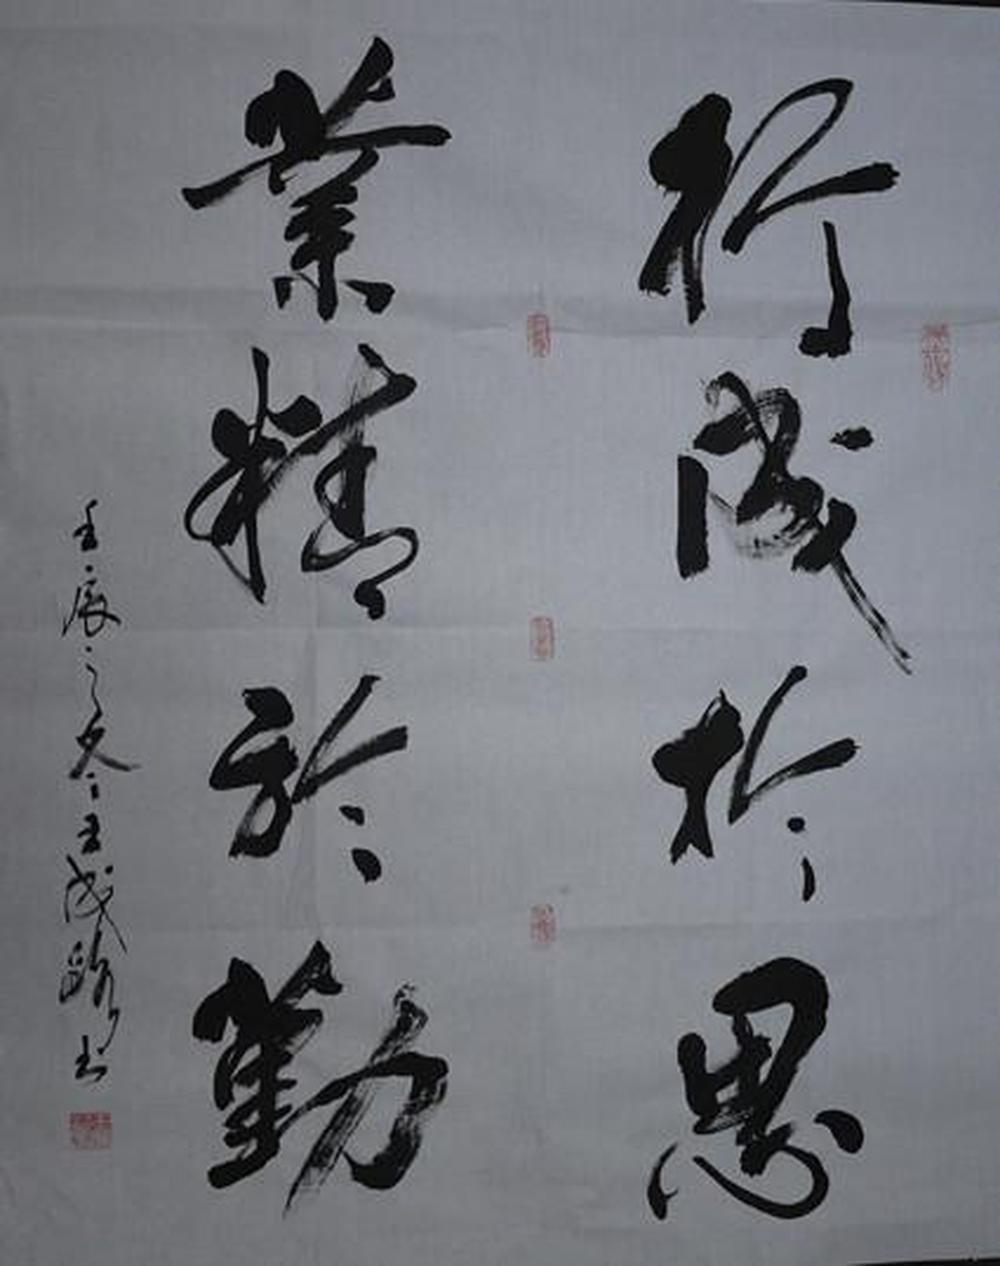 行成於思
業精於勤
壬辰之冬王成路书